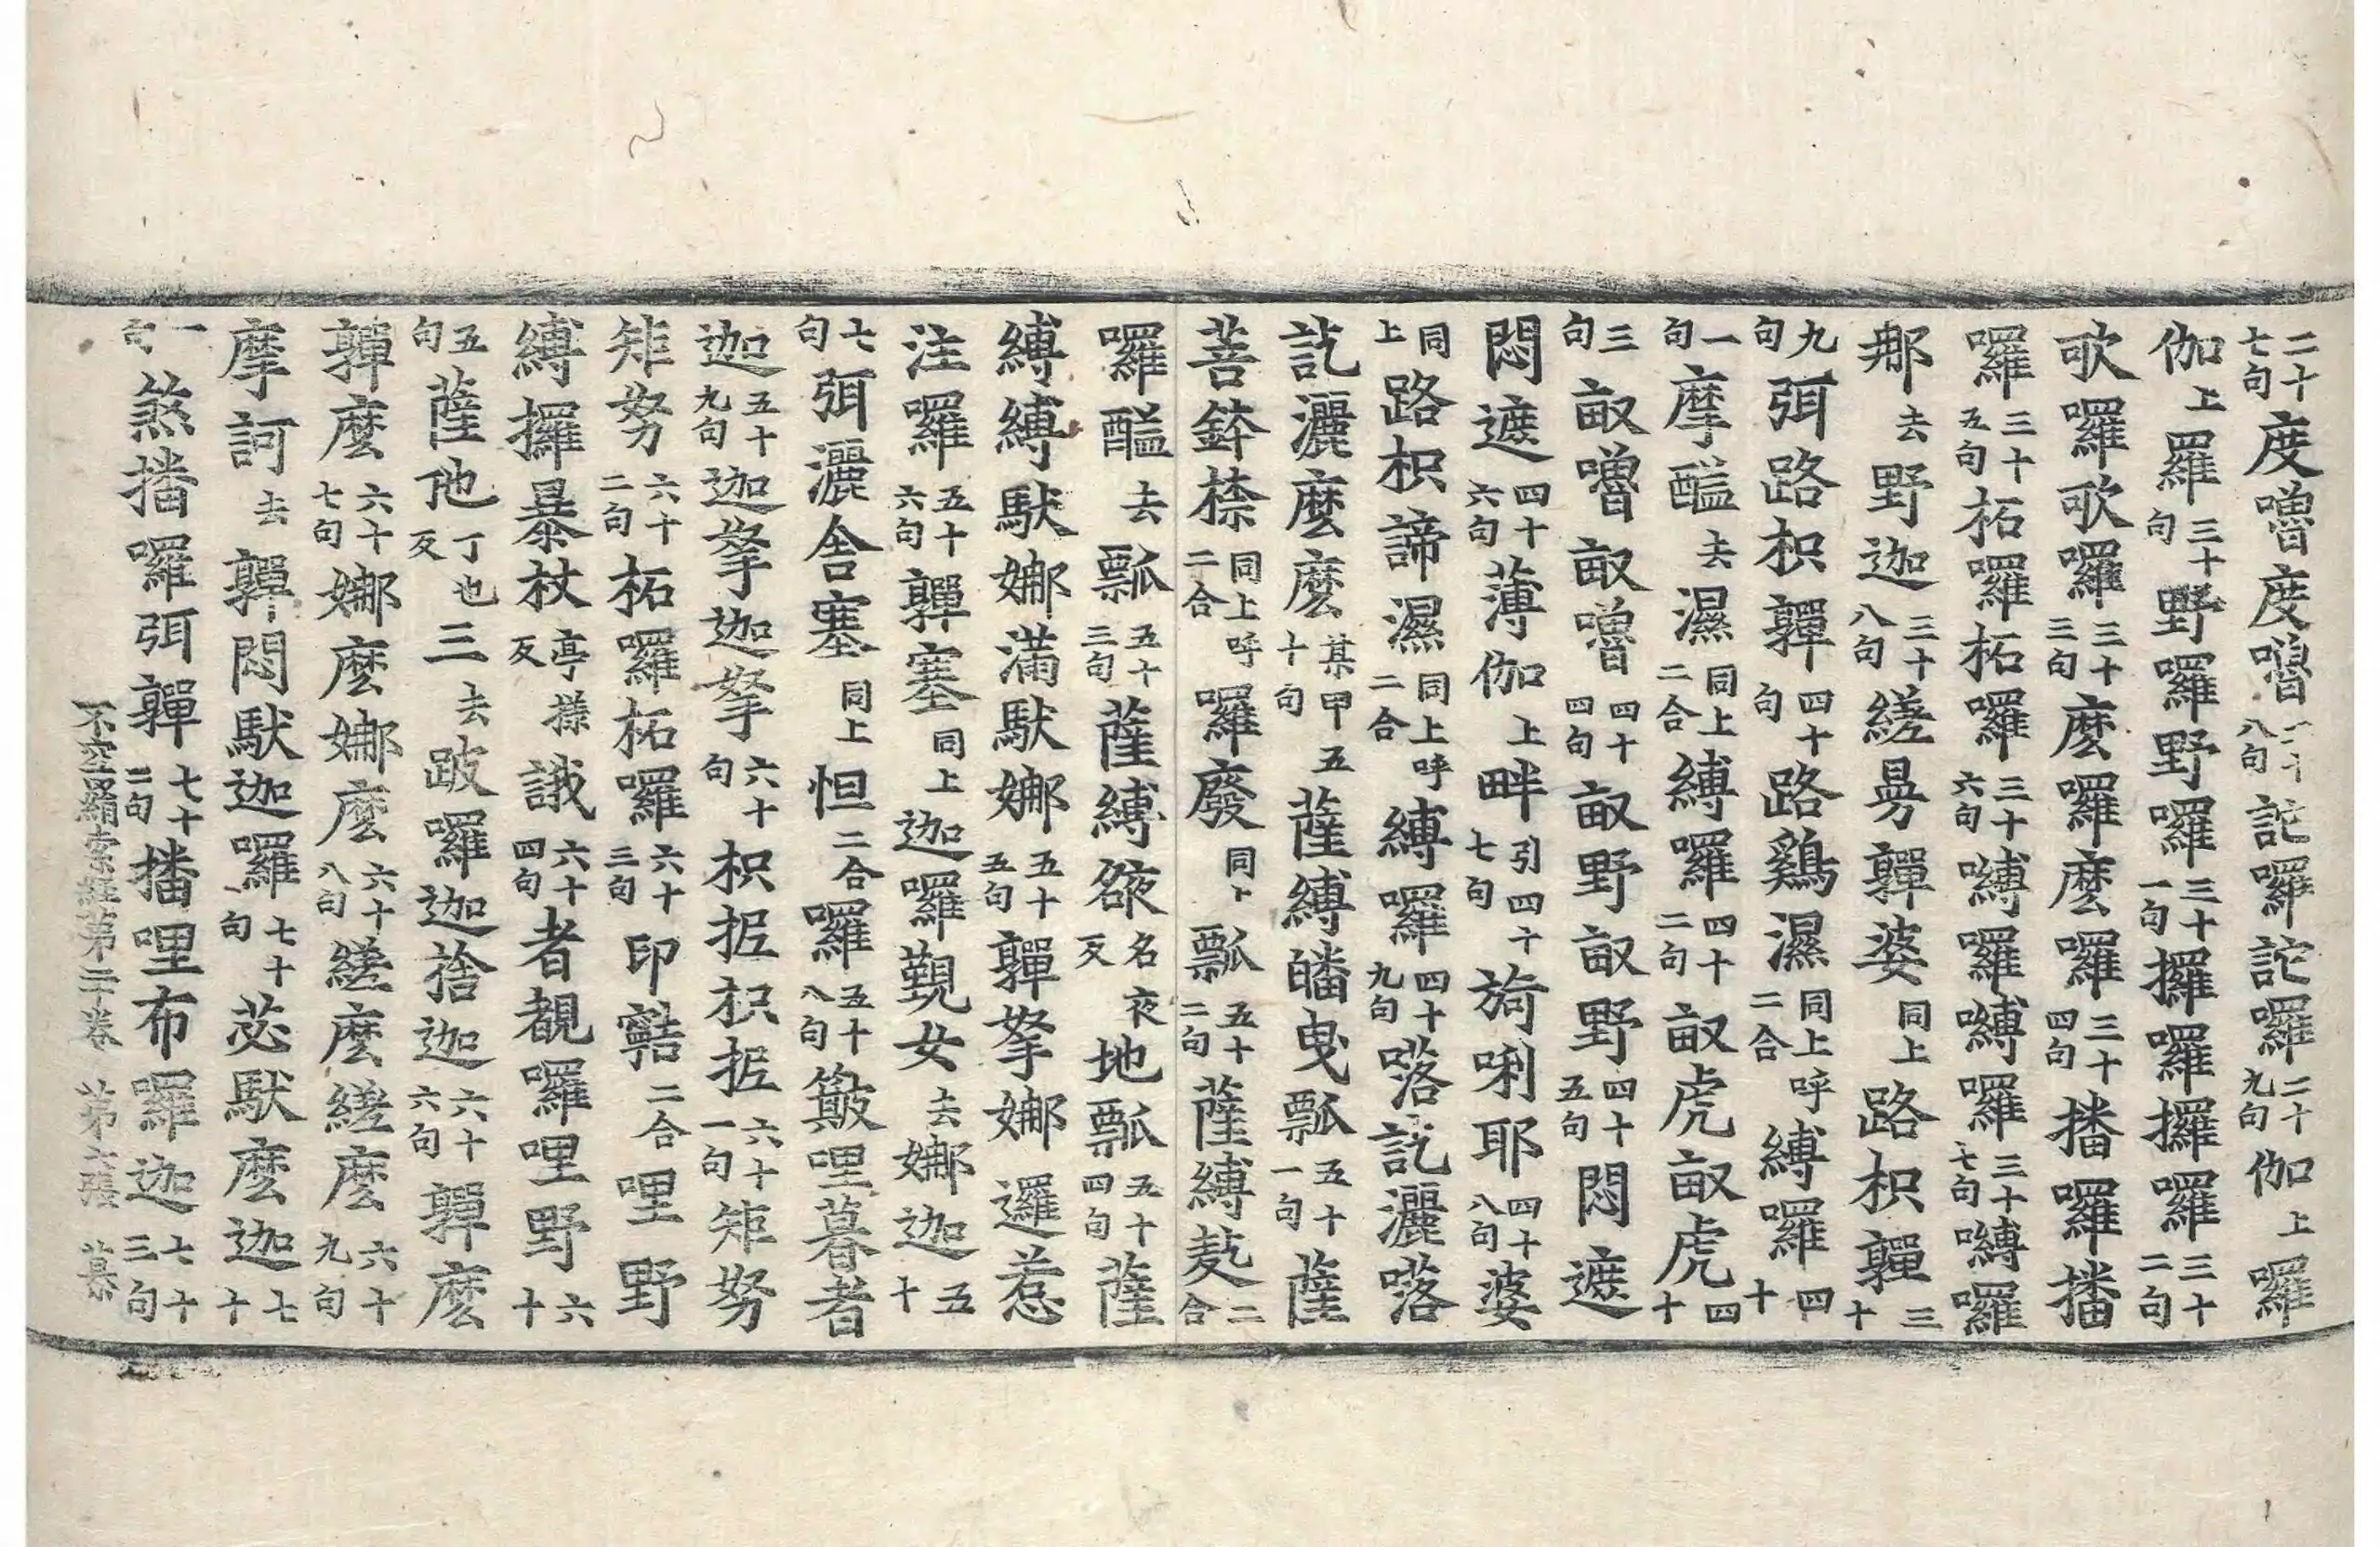 二十七句度嚕度嚕二十八句詑囉詑囉二十九句伽上囉
伽上囉三十句野囉野囉三十一句攞囉攞囉三十二句
歌囉歌囉三十三句麼囉麼囉三十四句播囉播
囉三十五句柘囉柘囉三十六句嚩囉嚩囉三十七句嚩囉
郍去野迦三十八句縒㝵亸婆同上路枳亸三十
九句弭路枳亸四十句路鷄濕二合同上呼縛囉四十
一句摩醯去濕二合同上縛囉四十二句畝虎畝虎四十
三句畝嚕畝嚕四十四句畝野畝野四十五句悶遮
悶遮四十六句薄伽上畔引四十七句旑唎耶四十八句婆
同上路枳諦濕二合同上呼縛囉四十九句𠸪訖灑𠸪
訖灑麼麼某甲五十句薩縛皤曳瓢五十一句薩
菩鉢㮈二合同上呼囉廢同上瓢五十二句薩縛䟦二合
囉醯去瓢五十三句薩縛𧙃名夜反地瓢五十四句薩
縛縛馱娜滿馱娜五十五句亸拏娜邏惹
注囉五十六句亸塞同上迦囉覲女去娜迦五十
七句弭灑舍塞同上怛二合囉五十八句簸哩暮者
迦五十九句迦拏迦拏六十句枳抳枳抳六十一句矩努
矩努六十二句柘囉柘囉六十三句印㘑二合哩野
縛攞暴杖亭㨾反誐六十四句者覩囉哩野六十
五句薩他丁也反三去跛囉迦捨迦六十六句亸麼
亸麼六十七句娜麼娜麼六十八句縒麼縒麼六十九句
摩訶去亸悶馱迦囉七十句苾馱麼迦七十
一句煞播囉弭亸七十二句播哩布囉迦七十三句
不空羂索經第二卷 第六張 慕